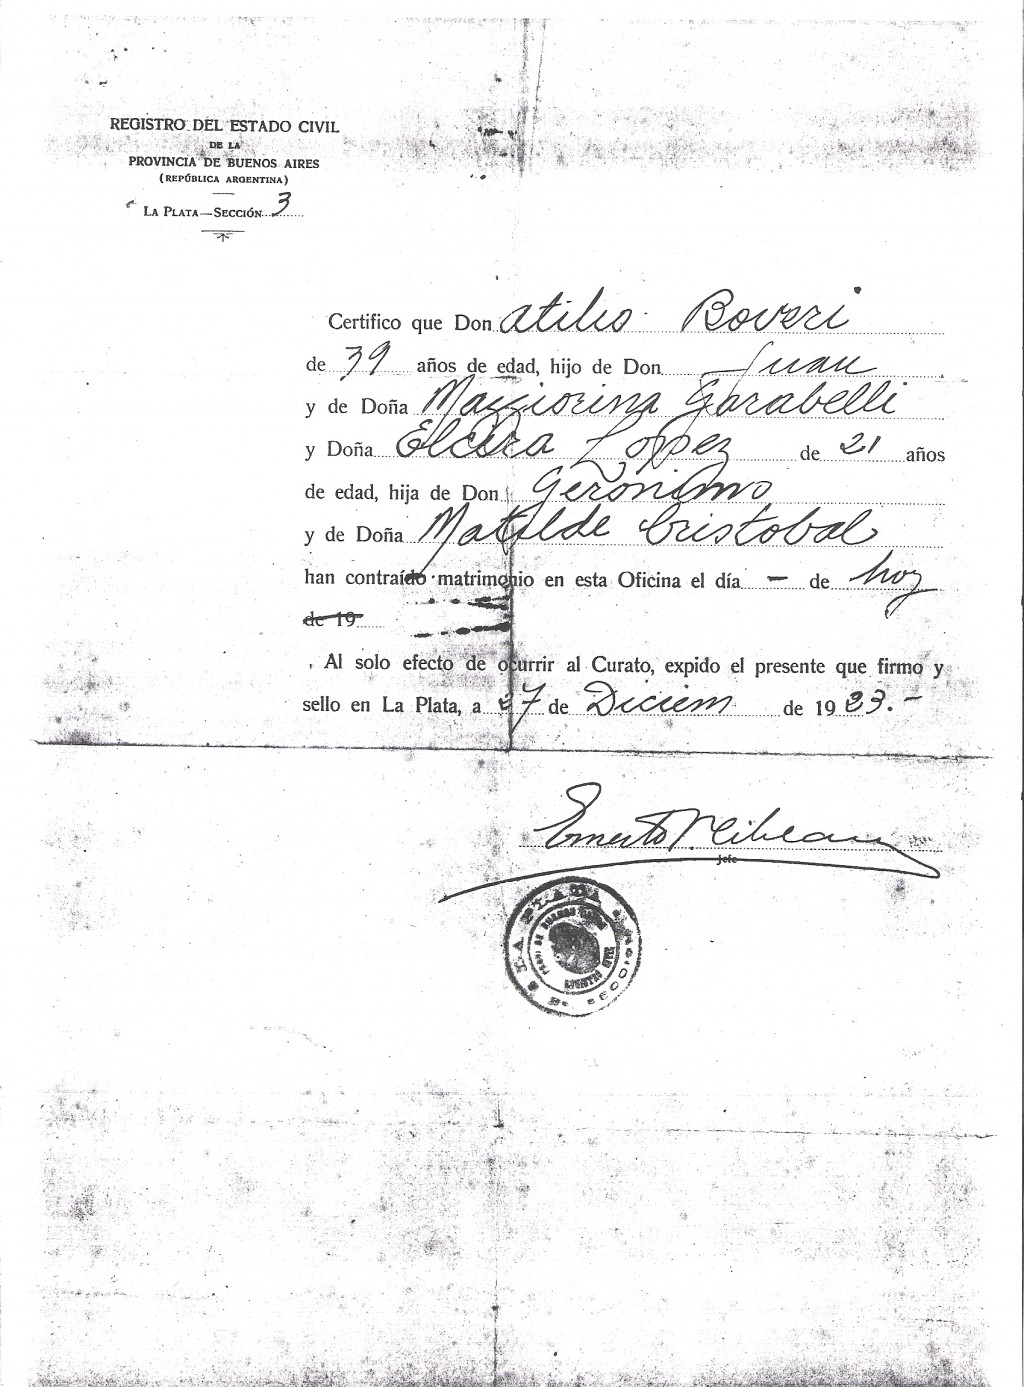 REGISTRO DEL ESTADO CIVIL
DE LA
PROVINCIA DE BUENOS AIRES
(REPÚBLICA ARGENTINA)
LA PLATA—SECCIÓN 3
Certifico que Don Atilio Boveri
de 39 años de edad, hijo de Don Juan
y de Doña Maggiorina Garabelli
y Doña Elcira Lopez de 21 años
de edad, hija de Don Gerónimo
y de Doña Matilde Cristobal
han contraído matrimonio en esta Oficina el día — de hoy
de 19
Al solo efecto de ocurrir al Curato, expido el presente que firmo y
sello en La Plata, a 27 de Diciem de 1923.-
Ernesto
Jefe
LA PLATA
SECCION 3a
PROV. DE BUENOS AIRES
REGISTRO CIVIL